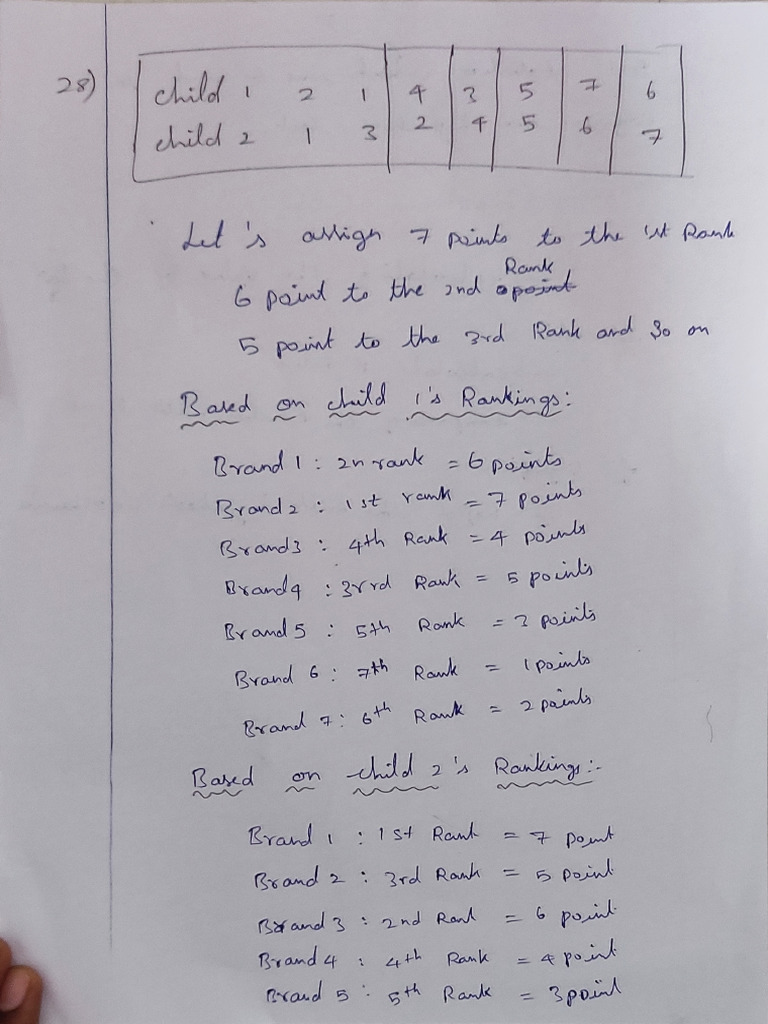 28)
child 1 2 1 4 3 5 7 6
child 2 1 3 2 4 5 6 7
Let's assign 7 points to the 1st Rank
6 point to the 2nd Rank point
5 point to the 3rd Rank and so on
Based on child 1's Rankings:
Brand 1 : 2n rank = 6 points
Brand 2 : 1st rank = 7 points
Brand 3 : 4th Rank = 4 points
Brand 4 : 3rrd Rank = 5 points
Brand 5 : 5th Rank = 3 points
Brand 6 : 7th Rank = 1 points
Brand 7 : 6th Rank = 2 points
Based on child 2's Rankings:-
Brand 1 : 1st Rank = 7 point
Brand 2 : 3rd Rank = 5 point
Brand 3 : 2nd Rank = 6 point
Brand 4 : 4th Rank = 4 point
Brand 5 : 5th Rank = 3 point